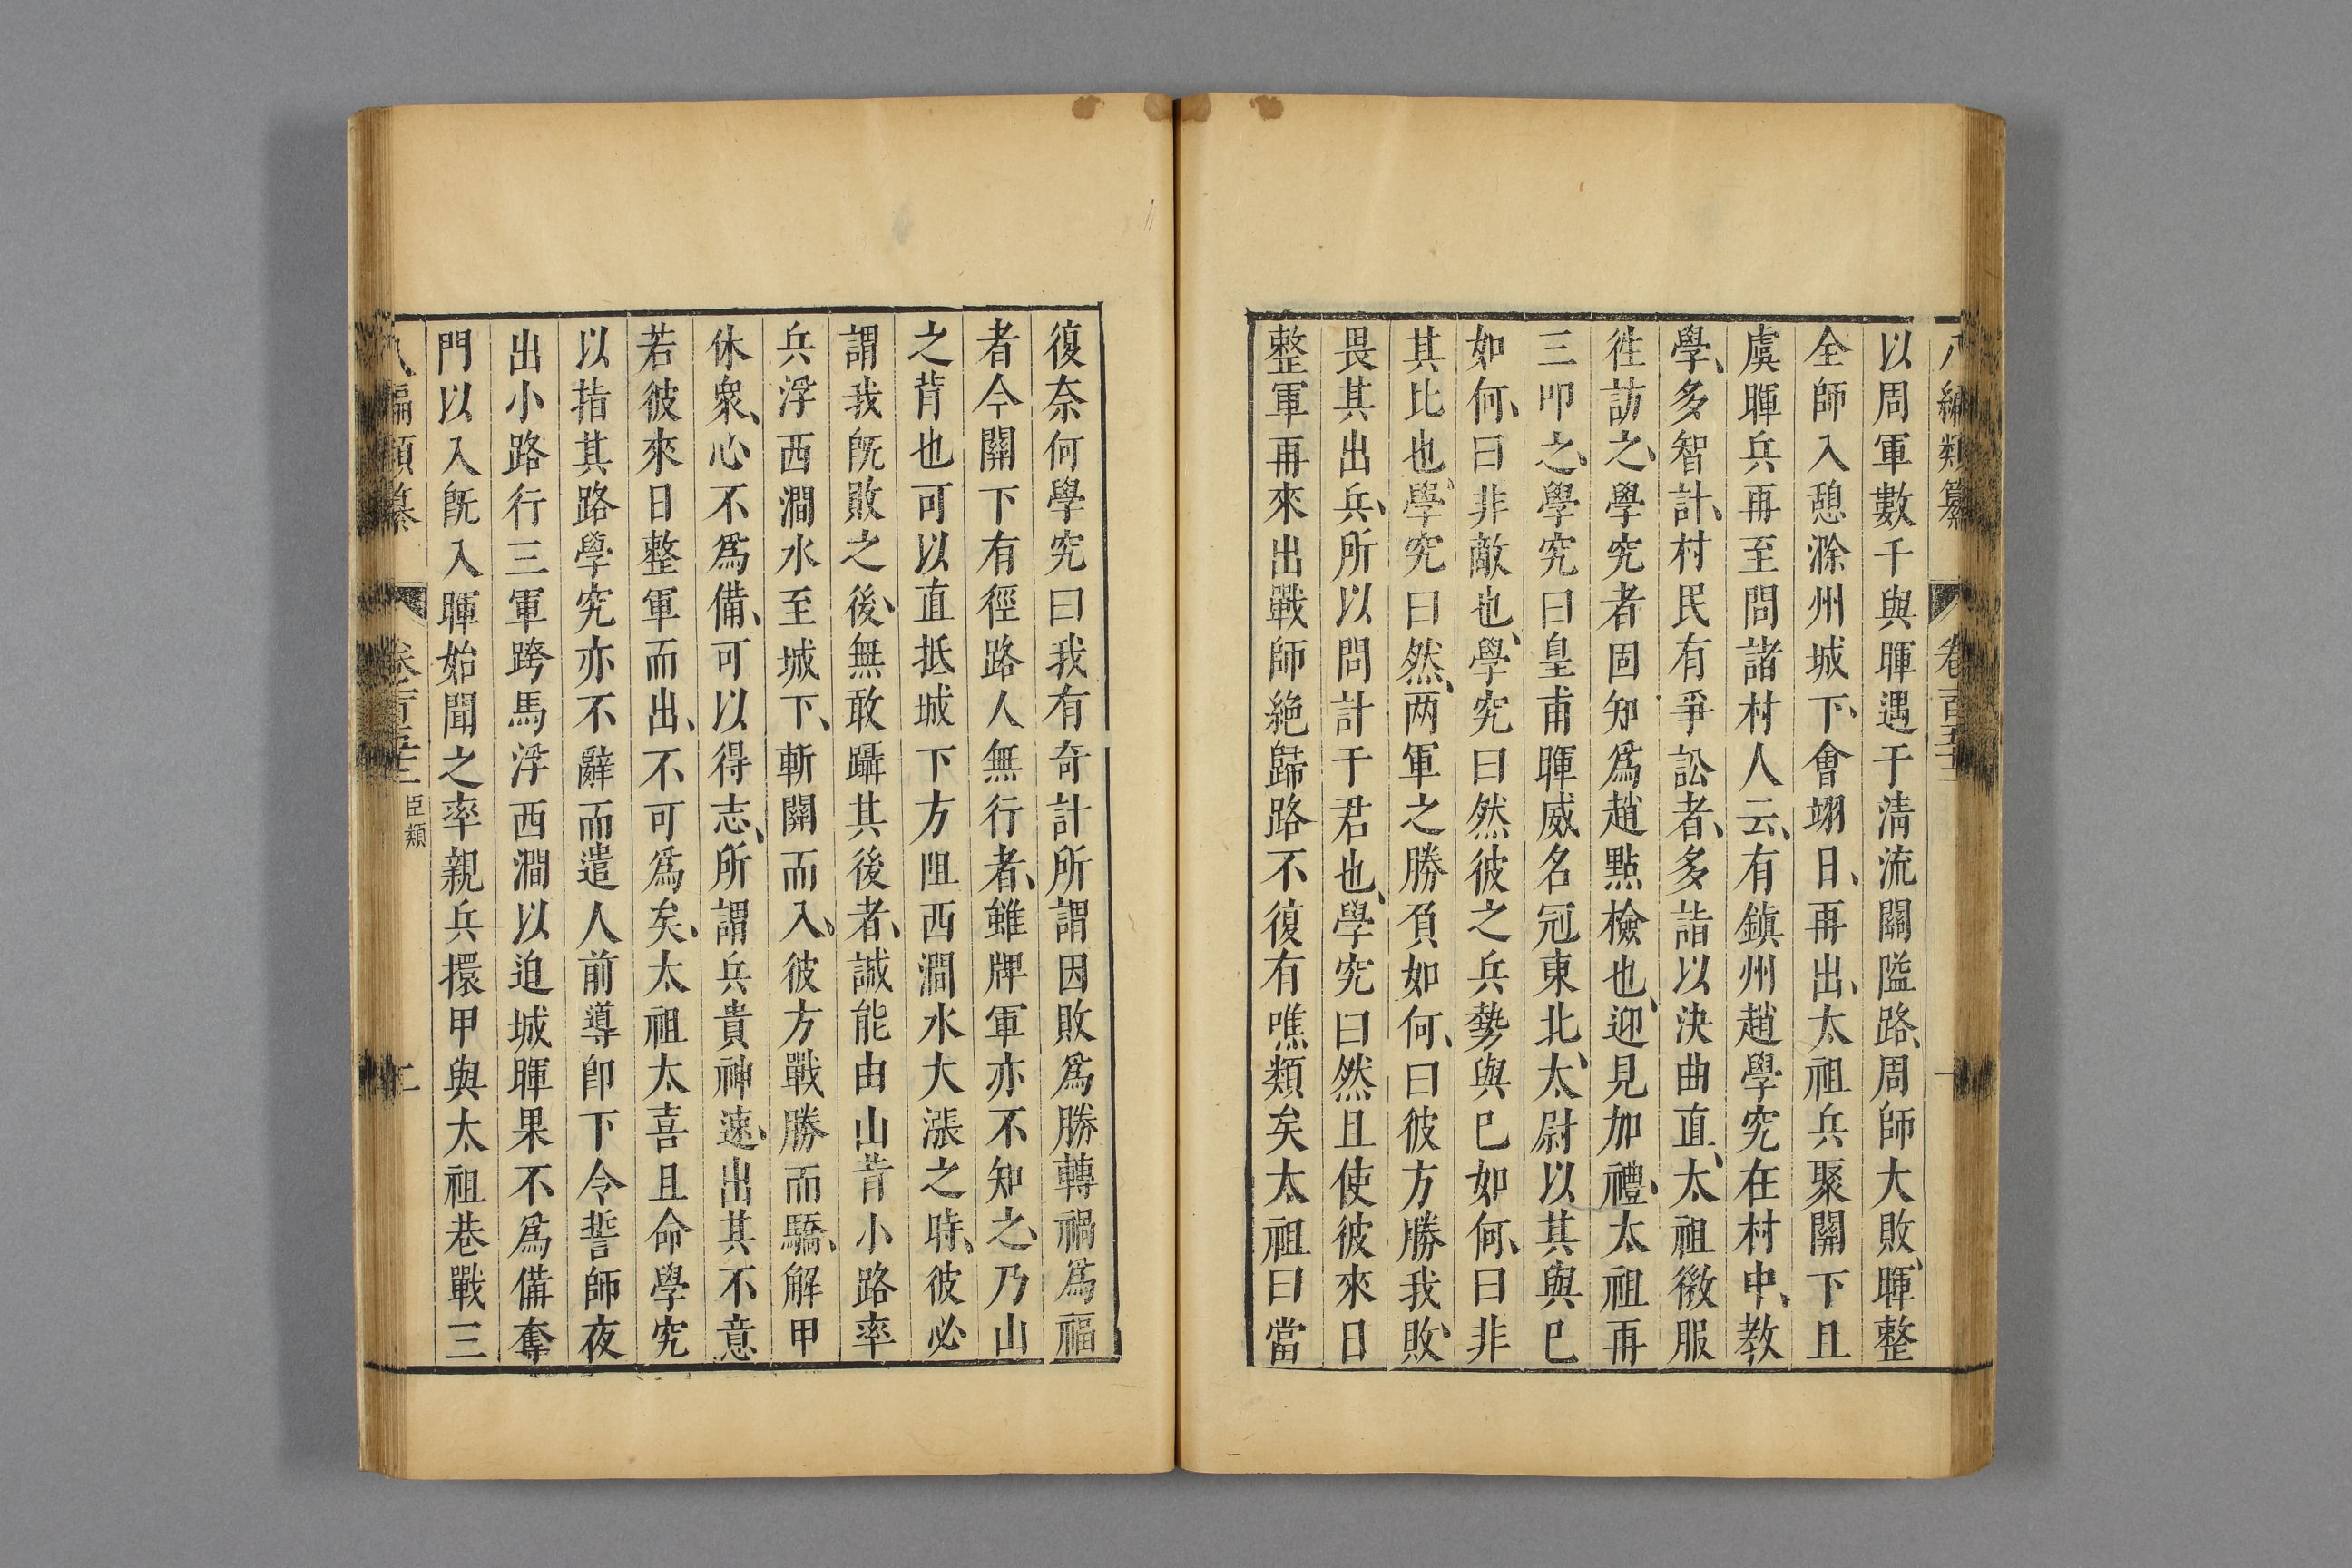 八編類纂 卷百五十二 一
以周軍數千與暉遇于淸流關隘路、周師大敗、暉整
全師入憩滁州城下、會翊日、再出、太祖兵聚關下且
虞暉兵再至問諸村人云、有鎮州趙學究在村中、教
學、多智計、村民有爭訟者、多詣以決曲直、太祖微服
徃訪之、學究者固知爲趙點檢也、迎見加禮、太祖再
三叩之、學究曰皇甫暉威名冠東北、太尉以其與已
如何、曰非敵也、學究曰然彼之兵勢與已如何、曰非
其比也、學究曰然、兩軍之勝負如何、曰彼方勝我敗、
畏其出兵、所以問計于君也、學究曰然且使彼來日
整軍再來出戰師絶歸路不復有噍類矣太祖曰當
復奈何學究曰我有奇計所謂因敗爲勝轉禍爲福
者今關下有徑路人無行者、雖牌軍亦不知之、乃山
之背也可以直抵城下方阻西澗水大漲之時、彼必
謂我旣敗之後、無敢躡其後者、誠能由山背小路率
兵浮西澗水至城下、斬關而入、彼方戰勝而驕、解甲
休衆、心不爲備、可以得志、所謂兵貴神速、出其不意
若彼來日整軍而出、不可爲矣、太祖大喜且命學究
以指其路學究亦不辭而遣人前導卽下令誓師夜
出小路行三軍跨馬浮西澗以迫城暉果不爲備奪
門以入旣入暉始聞之率親兵擐甲與太祖巷戰三
八編類纂 卷百五十二 臣類 二